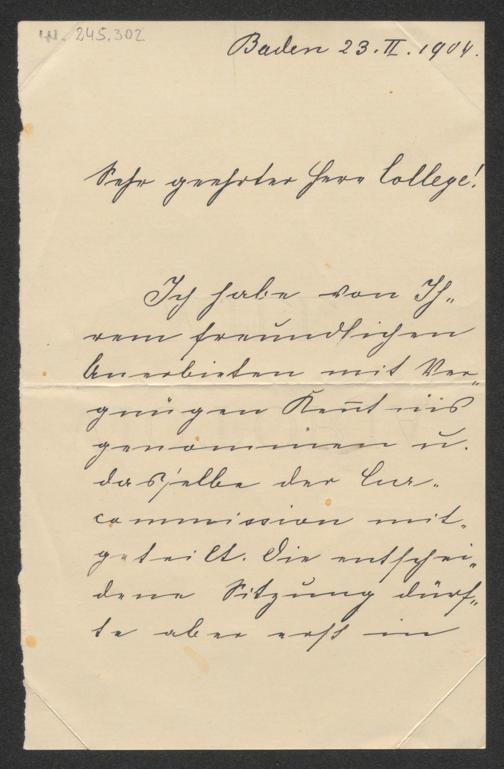 IN. 245.302
Baden 23. II. 1904.
Sehr geehrter Herr College!
Ich habe von Ih„
rem freundlichen
Anerbieten mit Ver„
gnügen Ken̄tniß
genommen u.
dasselbe der Cur„
commission mit„
geteilt. Die entschei„
dene Sitzung dürf„
te aber erst in